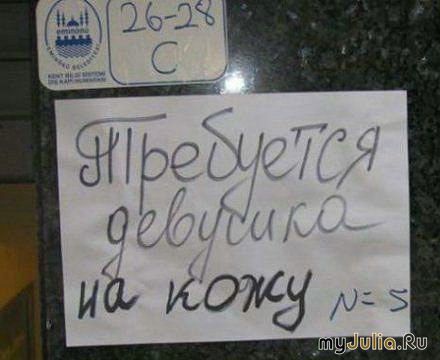 26-28
C
eminönü
EMİNÖNÜ BELEDİYESİ
KENT BİLGİ SİSTEMİ
DIŞ KAPI NUMARASI
Требуется
девушка
на кожу N=5
myJulia.Ru